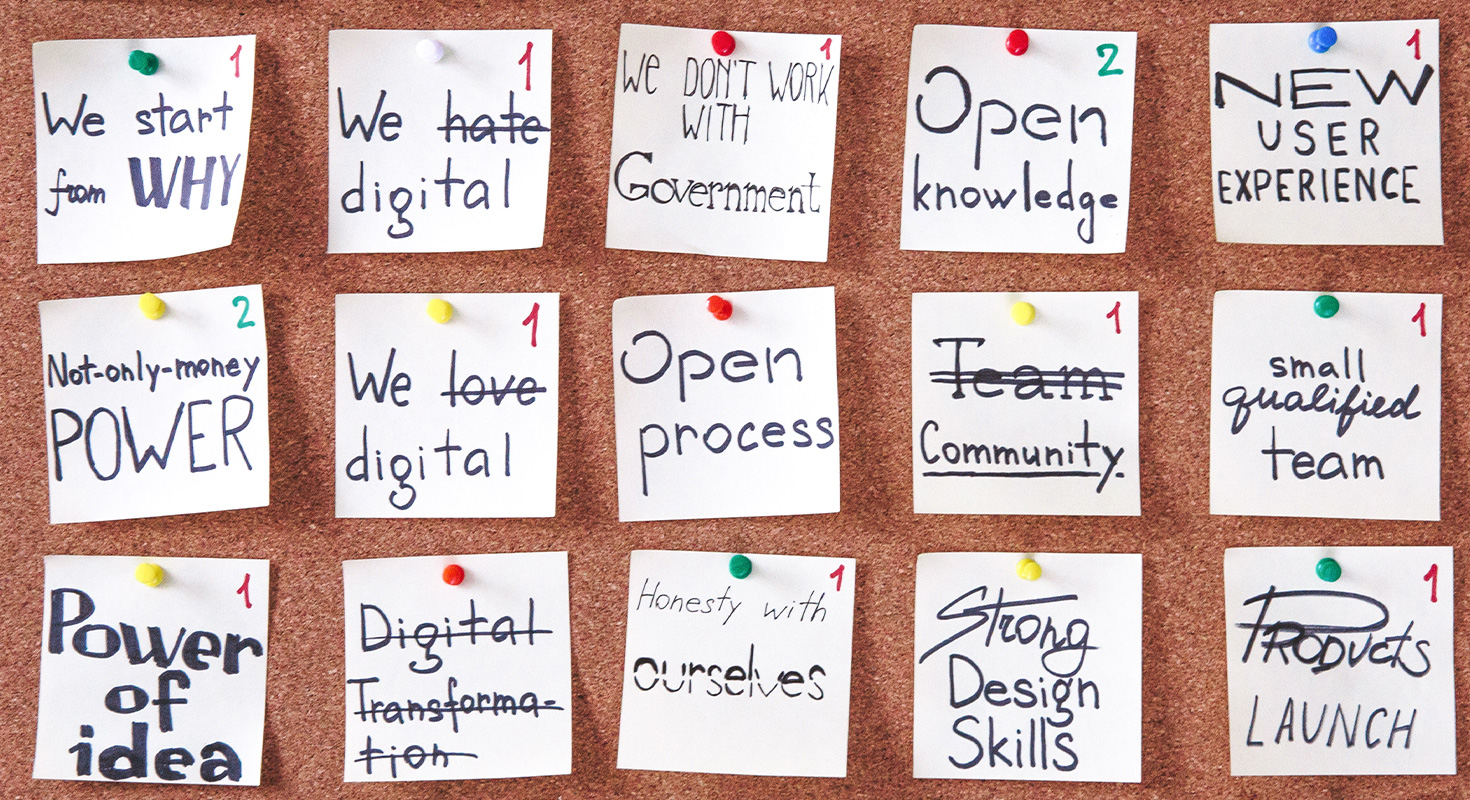 1
We start
from WHY
1
We hate
digital
1
We DON'T WORK
WITH
Government
2
Open
knowledge
1
NEW
USER
EXPERIENCE
2
Not-only-money
POWER
1
We love
digital
Open
process
1
Team
Community.
1
small
qualified
team
1
Power
of
idea
Digital
Transforma-
tion
1
Honesty with
ourselves
Strong
Design
Skills
1
PRODUCTS
LAUNCH